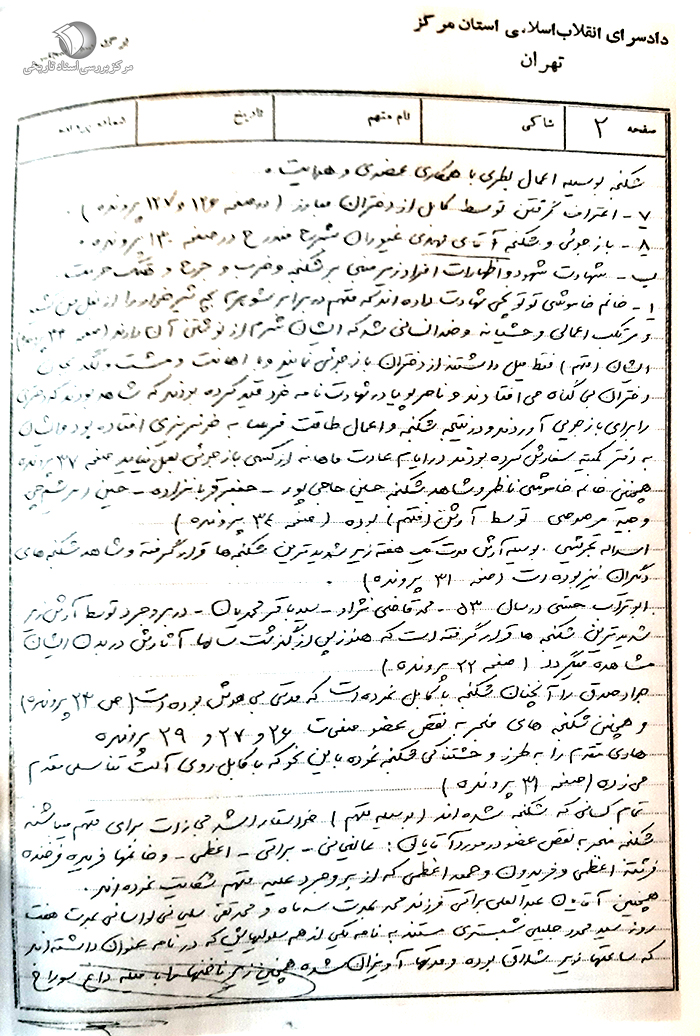 دادسرای انقلاب اسلامی استان مرکز
تهران
مرکز بررسی اسناد تاریخی
صفحه ۲ شاکی نام متهم تاریخ شماره پرونده
شکنجه بوسیله اعمال بطری با همکاری عضدی و هدایت.
۷- اعتراف گرفتن توسط کابل از دختران مبارز (در صفحه ۱۲۶ و ۱۲۷ پرونده).
۸- بازجوئی و شکنجه آقای مهدی غیوران مشروح مندرج در صفحه ۱۳۰ پرونده.
ب- شهادت شهود و اظهارات افراد زیر مبنی بر شکنجه و ضرب و جرح و هتک حرمت.
۱- خانم خاموشی توتونچی شهادت داده اند که متهم در برابر شوهرم بچه شیرخوار را از
و مرتکب اعمالی وحشیانه و ضد انسانی شد که ایشان شرم از نوشتن آن دارند (صفحه ۳۳ پرونده)
ایشان (متهم) فقط میل داشتند از دختران بازجوئی نمایند و با اهانت و مشت و لگد بجان
دختران بی گناه می افتادند و ناصر پویا در شهادت نامه خود قید کرده بودند که شاهد بودند که دختری
را برای بازجویی آوردند و در نتیجه شکنجه و اعمال طاقت فرسا به خونریزی افتاده بود و ایشان
به دفتر کمیته سفارش کرده بودند در ایام عادت ماهانه از کسی بازجوئی بعمل نیاید صفحه ۳۷ پرونده
همچنین خانم خاموشی ناظر و شاهد شکنجه حسین حاجی پور - جعفر قربانزاده - حسین
وجیه مرصوصی توسط آرش (متهم) بوده (صفحه ۳۴ پرونده)
اسداله تجریشی بوسیله آرش مدت یک هفته زیر شدیدترین شکنجه ها قرار گرفته و شاهد شکنجه های
دیگران نیز بوده است (صفحه ۳۱ پرونده).
ابوتراب حسنی در سال ۵۳ - محمد قاضی نژاد - سید باقر محمدیان - در بروجرد توسط آرش زیر
شدیدترین شکنجه ها قرار گرفته است که هنوز پس از گذشت سالها آثارش در بدن ایشان
مشاهده میگردد (صفحه ۲۲ پرونده)
جواد صدق را آنچنان شکنجه با کابل نموده است که مدتی بی هوش بوده است (ص ۲۳ پرونده)
و همچنین شکنجه های منجر به نقص عضو صفحات ۲۶ و ۲۷ و ۲۹ پرونده
هادی مقدم را به طرز وحشتناکی شکنجه نموده باین نحو که با کابل روی آلت تناسلی مقدم
می زده (صفحه ۳۱ پرونده)
تمام کسانی که شکنجه شده اند (بوسیله متهم) خواستار اشد مجازات برای متهم میباشند
شکنجه منجر به نقص عضو در مورد آقایان: - براتی - اعظمی - و خانمها فریده و فرخنده
فرشته اعظمی و فریدون و حمید اعظمی که از بروجرد علیه متهم شکایت نموده اند.
همچنین آقایان عبدالعلی براتی فرزند محمد بمدت سه ماه و محمدتقی سلیمانی لواسانی بمدت هفت
روز سید محمود جلیلی شبستری مستند به نامه یکی از هم سلولیهایش که در نامه عنوان داشته اند
که ساعتها زیر شلاق بوده و مدتها آویزان شده همچنین زیر ناخنها را با میله داغ سوراخ